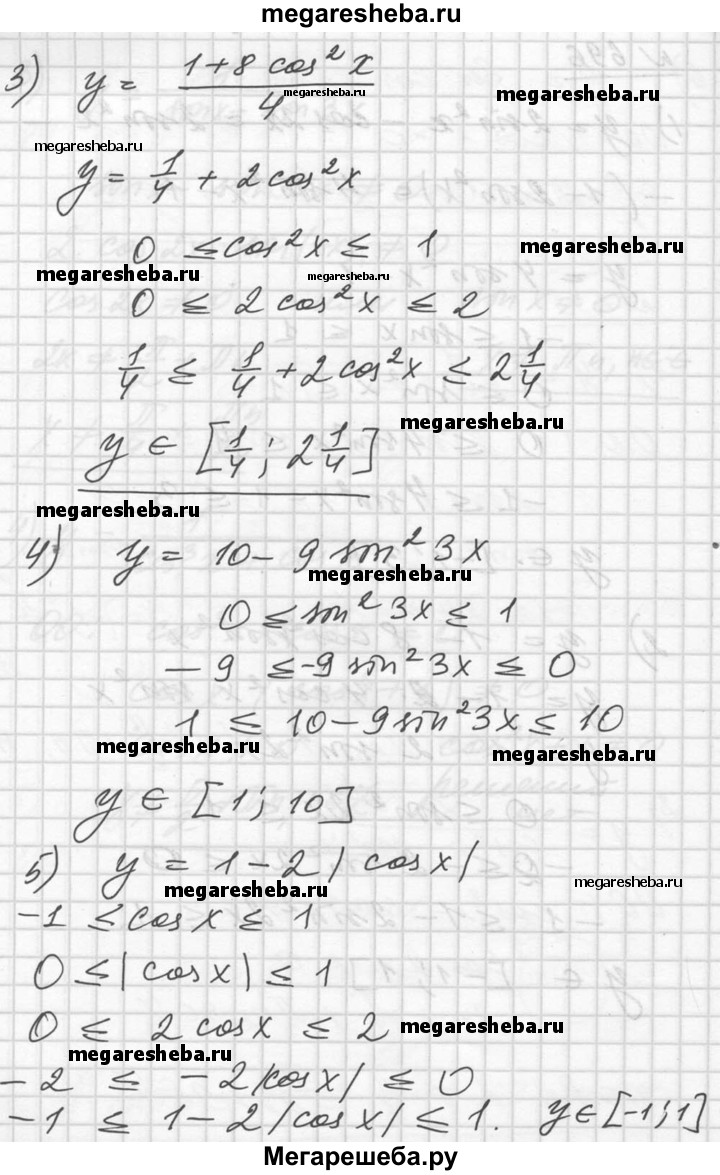 megaresheba.ru
3) y = (1+8 cos²x)/4
megaresheba.ru
megaresheba.ru
megaresheba.ru
y = 1/4 + 2 cos²x
0 ≤ cos²x ≤ 1
megaresheba.ru
megaresheba.ru
megaresheba.ru
0 ≤ 2 cos²x ≤ 2
1/4 ≤ 1/4 + 2 cos²x ≤ 2 1/4
megaresheba.ru
y ∈ [1/4; 2 1/4]
megaresheba.ru
4) y = 10 - 9 sin²3x
megaresheba.ru
0 ≤ sin²3x ≤ 1
-9 ≤ -9 sin²3x ≤ 0
1 ≤ 10 - 9 sin²3x ≤ 10
megaresheba.ru
megaresheba.ru
y ∈ [1; 10]
5) y = 1 - 2 |cos x|
megaresheba.ru
megaresheba.ru
-1 ≤ cos x ≤ 1
0 ≤ |cos x| ≤ 1
0 ≤ 2 cos x ≤ 2
megaresheba.ru
megaresheba.ru
-2 ≤ -2|cos x| ≤ 0
-1 ≤ 1 - 2|cos x| ≤ 1. y ∈ [-1; 1]
Мегарешеба.ру